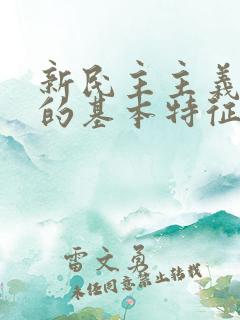 新民主主義
的基本特征
雷文勇
未经同意禁止转载